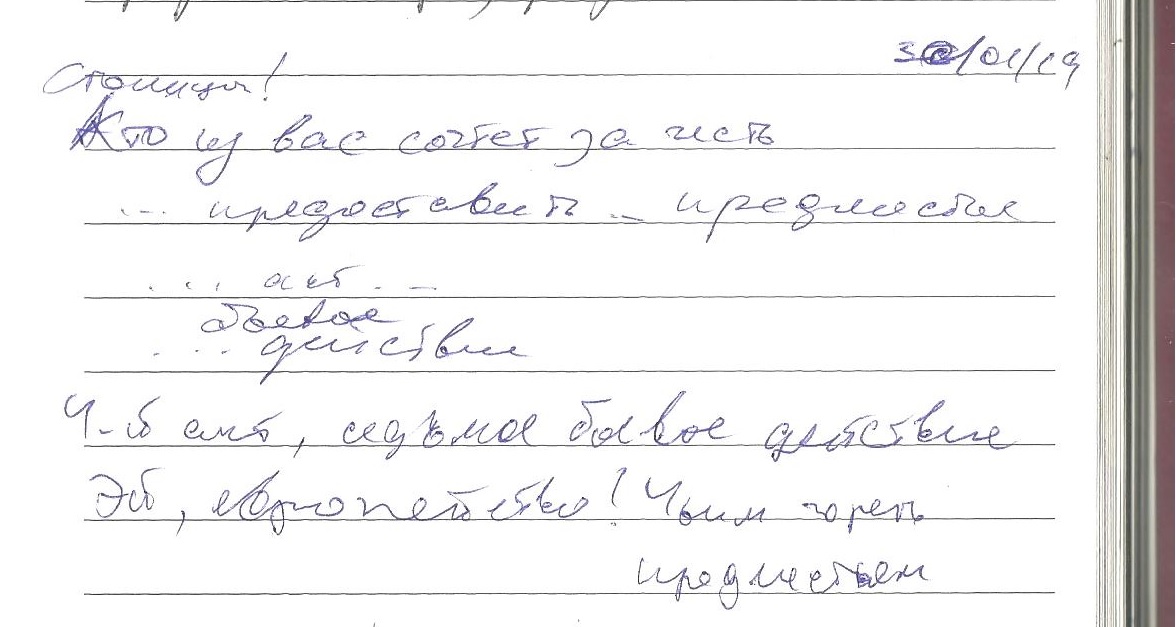 30/01/19
Столицы!
Кто из вас сочтет за честь
... предоставить ... предместье
... акт ...
боевое
... действие
4-й акт, седьмое боевое действие
Эй, европейство! Чьим гореть
предместьем